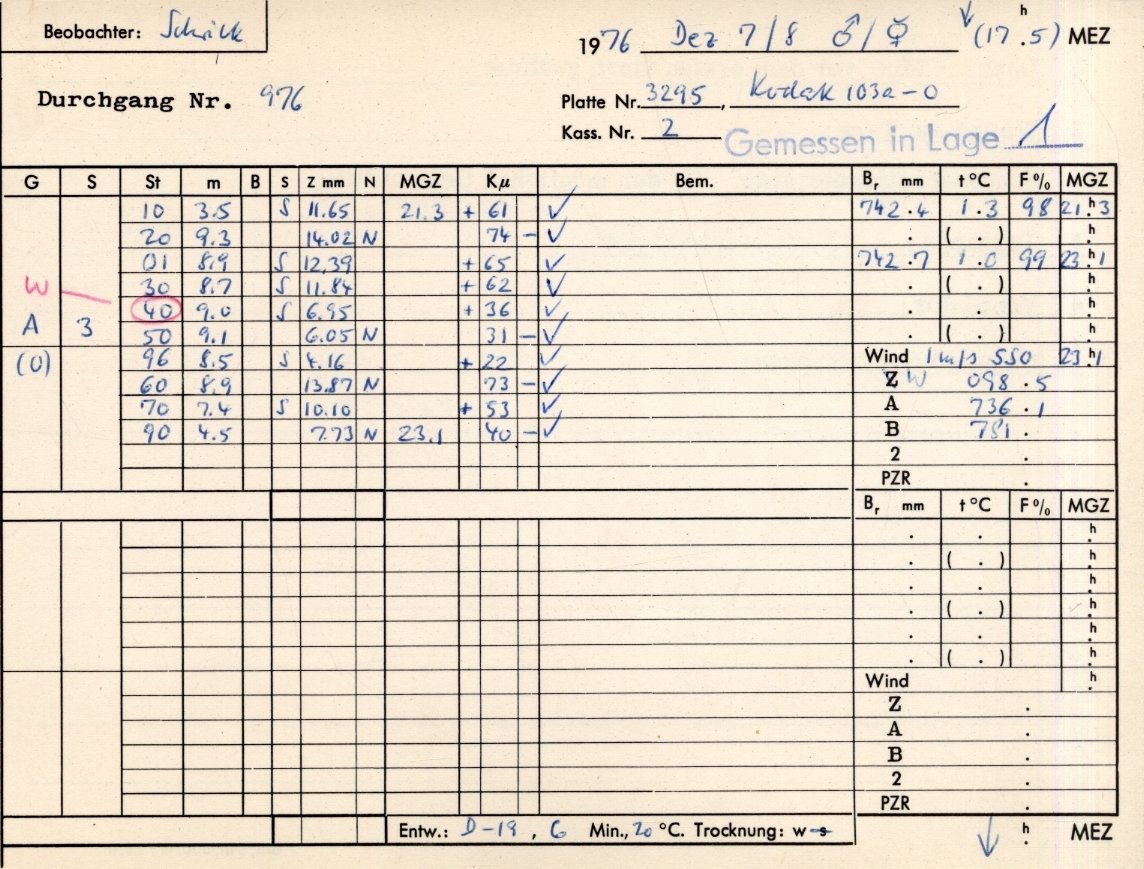 Beobachter: Schrick
1976 Dez 7/8 ♂/☿ ↓ (17h.5) MEZ
Durchgang Nr. 976
Platte Nr. 3295, Kodak 103a-O
Kass. Nr. 2
Gemessen in Lage 1
G S St m B S Z mm N MGZ Kμ Bem. Br mm t °C F % MGZ
10 3.5 S 11.65 21.3 + 61 ✓ 742.4 1.3 98 21.h3
20 9.3 14.02 N 74 – ✓ . ( . ) h.
01 8.9 S 12.39 + 65 ✓ 742.7 1.0 99 23.h1
W 30 8.7 S 11.84 + 62 ✓ . ( . ) h.
40 9.0 S 6.95 + 36 ✓ . . h.
A 3 50 9.1 6.05 N 31 – ✓ . ( . ) h.
(0) 96 8.5 S 4.16 + 22 ✓ Wind 1 m/s SSO 23.h1
60 8.9 13.87 N 73 – ✓ Z W 098.5
70 7.4 S 10.10 + 53 ✓ A 736.1
90 4.5 7.73 N 23.1 40 – ✓ B 781.
2 .
PZR .
Br mm t °C F % MGZ
. . h.
. ( . ) h.
. . h.
. ( . ) h.
. . h.
. ( . ) h.
Wind h.
Z .
A .
B .
2 .
PZR .
Entw.: D-19, 6 Min., 20 °C. Trocknung: w s
↓ h. MEZ